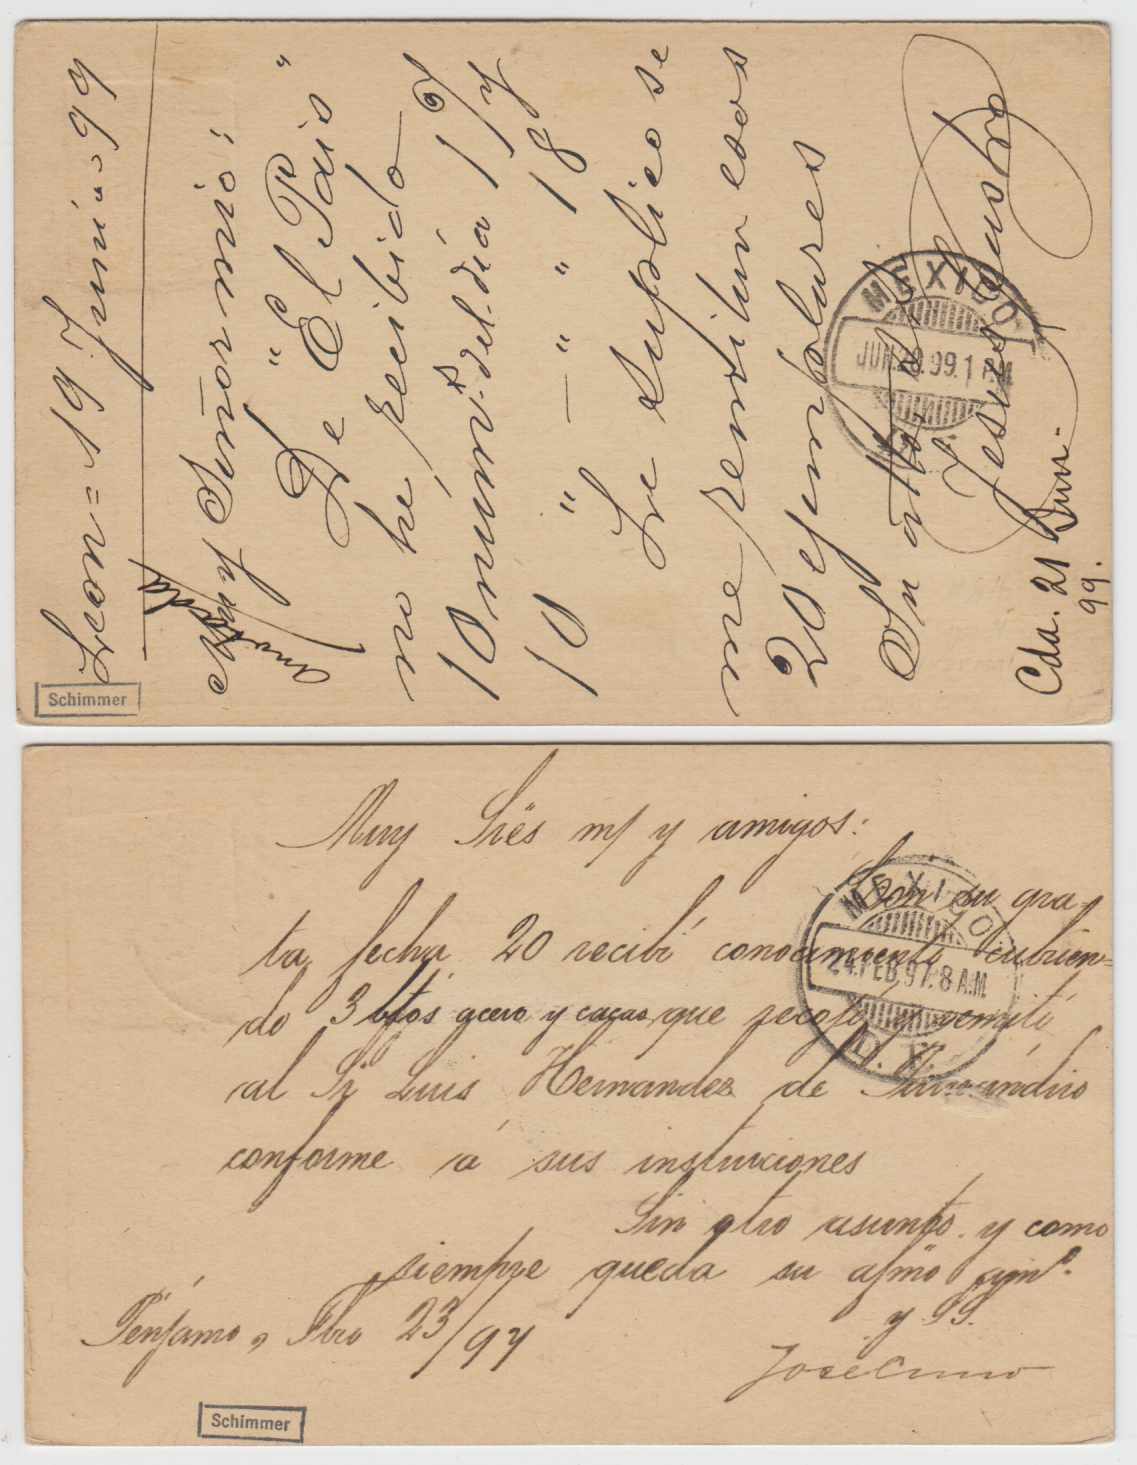 Leon = 19 Junio = 99
Muy Señor mio:
De "El Pais"
no he recibido
10 núm.s del día 17 y
10 " — " " 18
Le suplico se
me remitan esos
20 ejemplares
Su atto
Jesus
Cda. 21 Jun.
99.
MEXICO
JUN. 20. 99. 1 P.M.
Schimmer
Muy Sres m/ y amigos:
Con su gra-
ta fecha 20 recibí conocimiento cubrien-
do 3 btos acero y cacao que recogí y remití
al Sr Luis Hernandez de Puruándiro
conforme á sus instrucciones
Sin otro asunto y como
siempre queda su afmo amo.
y SS.
Pénjamo, Fbro 23/97
Jose
MEXICO
24. FEB. 97. 8 A.M.
D. F.
Schimmer